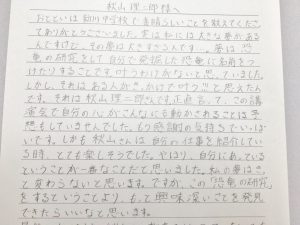 秋山 理二郎様へ
おとといは 中学校で 素晴らしいことを教えてくださり
ありがとうございました。実は私には大きな夢がある
んですけど、その夢は大きすぎるんです…。夢は恐
竜の研究をして自分で発掘した恐竜に名前をつ
けたりすることです。叶うわけがないと思っていました。
しかし、それはあるんがきっかけで叶うと思えたん
です。それは秋山理二郎さんです。正直言って、この講
演会で自分の心がこんなにも動かされることは予
想もしていませんでした。もう感謝の気持ちでいっぱ
いです。しかも秋山さんは自分の仕事を紹介してい
る時、とても楽しそうでした。やはり、自分にあっている
ということが一番なことだと思いました。私の夢はき
っと変わらないと思います。ですが、この「恐竜の研究」
をするということより、もっと興味深いことを発見
できたらいいなと思います。